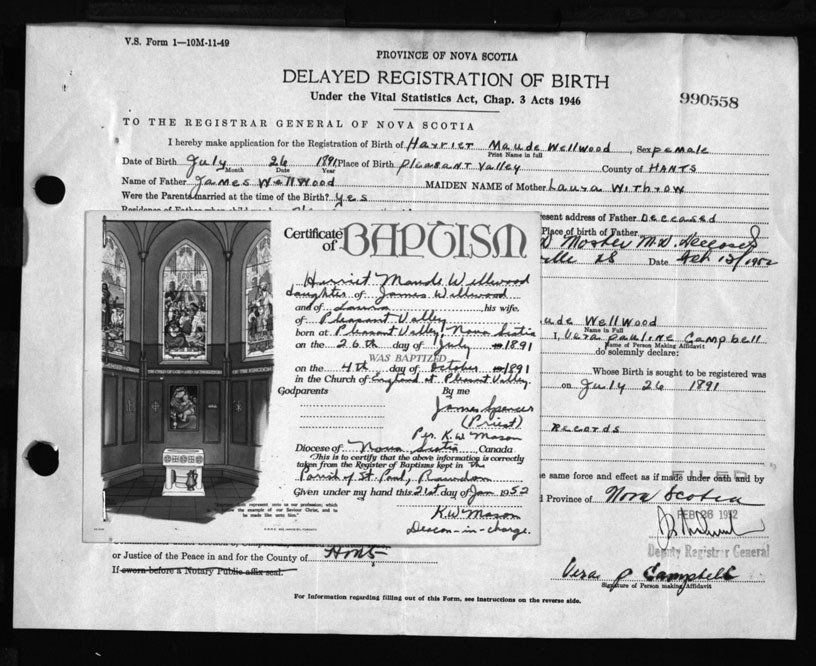 V.S. Form 1—10M-11-49
PROVINCE OF NOVA SCOTIA
DELAYED REGISTRATION OF BIRTH
Under the Vital Statistics Act, Chap. 3 Acts 1946
990558
TO THE REGISTRAR GENERAL OF NOVA SCOTIA
I hereby make application for the Registration of Birth of Harriet Maude Wellwood, Sex Female
Print Name in full
Date of Birth July 26 1891 Place of Birth Pleasant Valley County of HANTS
Month Date Year
Name of Father James Wellwood MAIDEN NAME of Mother Laura Withrow
Were the Parents married at the time of the Birth? Yes
present address of Father Deceased
Place of birth of Father
Mosher M.D. Deceased
ville NS Date Feb 12/1952
Certificate of BAPTISM
Harriet Maude Wellwood
daughter of James Wellwood
and of Laura his wife.
of Pleasant Valley
born at Pleasant Valley Nova Scotia
on the 26th day of July 1891
WAS BAPTIZED
on the 4th day of October 1891
in the Church of England at Pleasant Valley.
Godparents By me
James Spencer
(Priest)
Per. K.W. Mason
Diocese of Nova Scotia Canada
This is to certify that the above information is correctly
taken from the Register of Baptisms kept in the
Parish of St. Paul, Rawdon
Given under my hand this 21st day of Jan 1952
K.W. Mason
Deacon-in-charge.
represent unto us our profession; which
the example of our Saviour Christ, and to
be made like unto him."
aude Wellwood
Name in Full
I, Vera Pauline Campbell
Name of Person Making Affidavit
do solemnly declare:
Whose Birth is sought to be registered was
on July 26 1891
Records
e same force and effect as if made under oath and by
FILED
Province of Nova Scotia
FEB 26 1952
Deputy Registrar General
or Justice of the Peace in and for the County of Hants
If sworn before a Notary Public affix seal.
Vera P Campbell
Signature of Person making Affidavit
For Information regarding filling out of this Form, see Instructions on the reverse side.